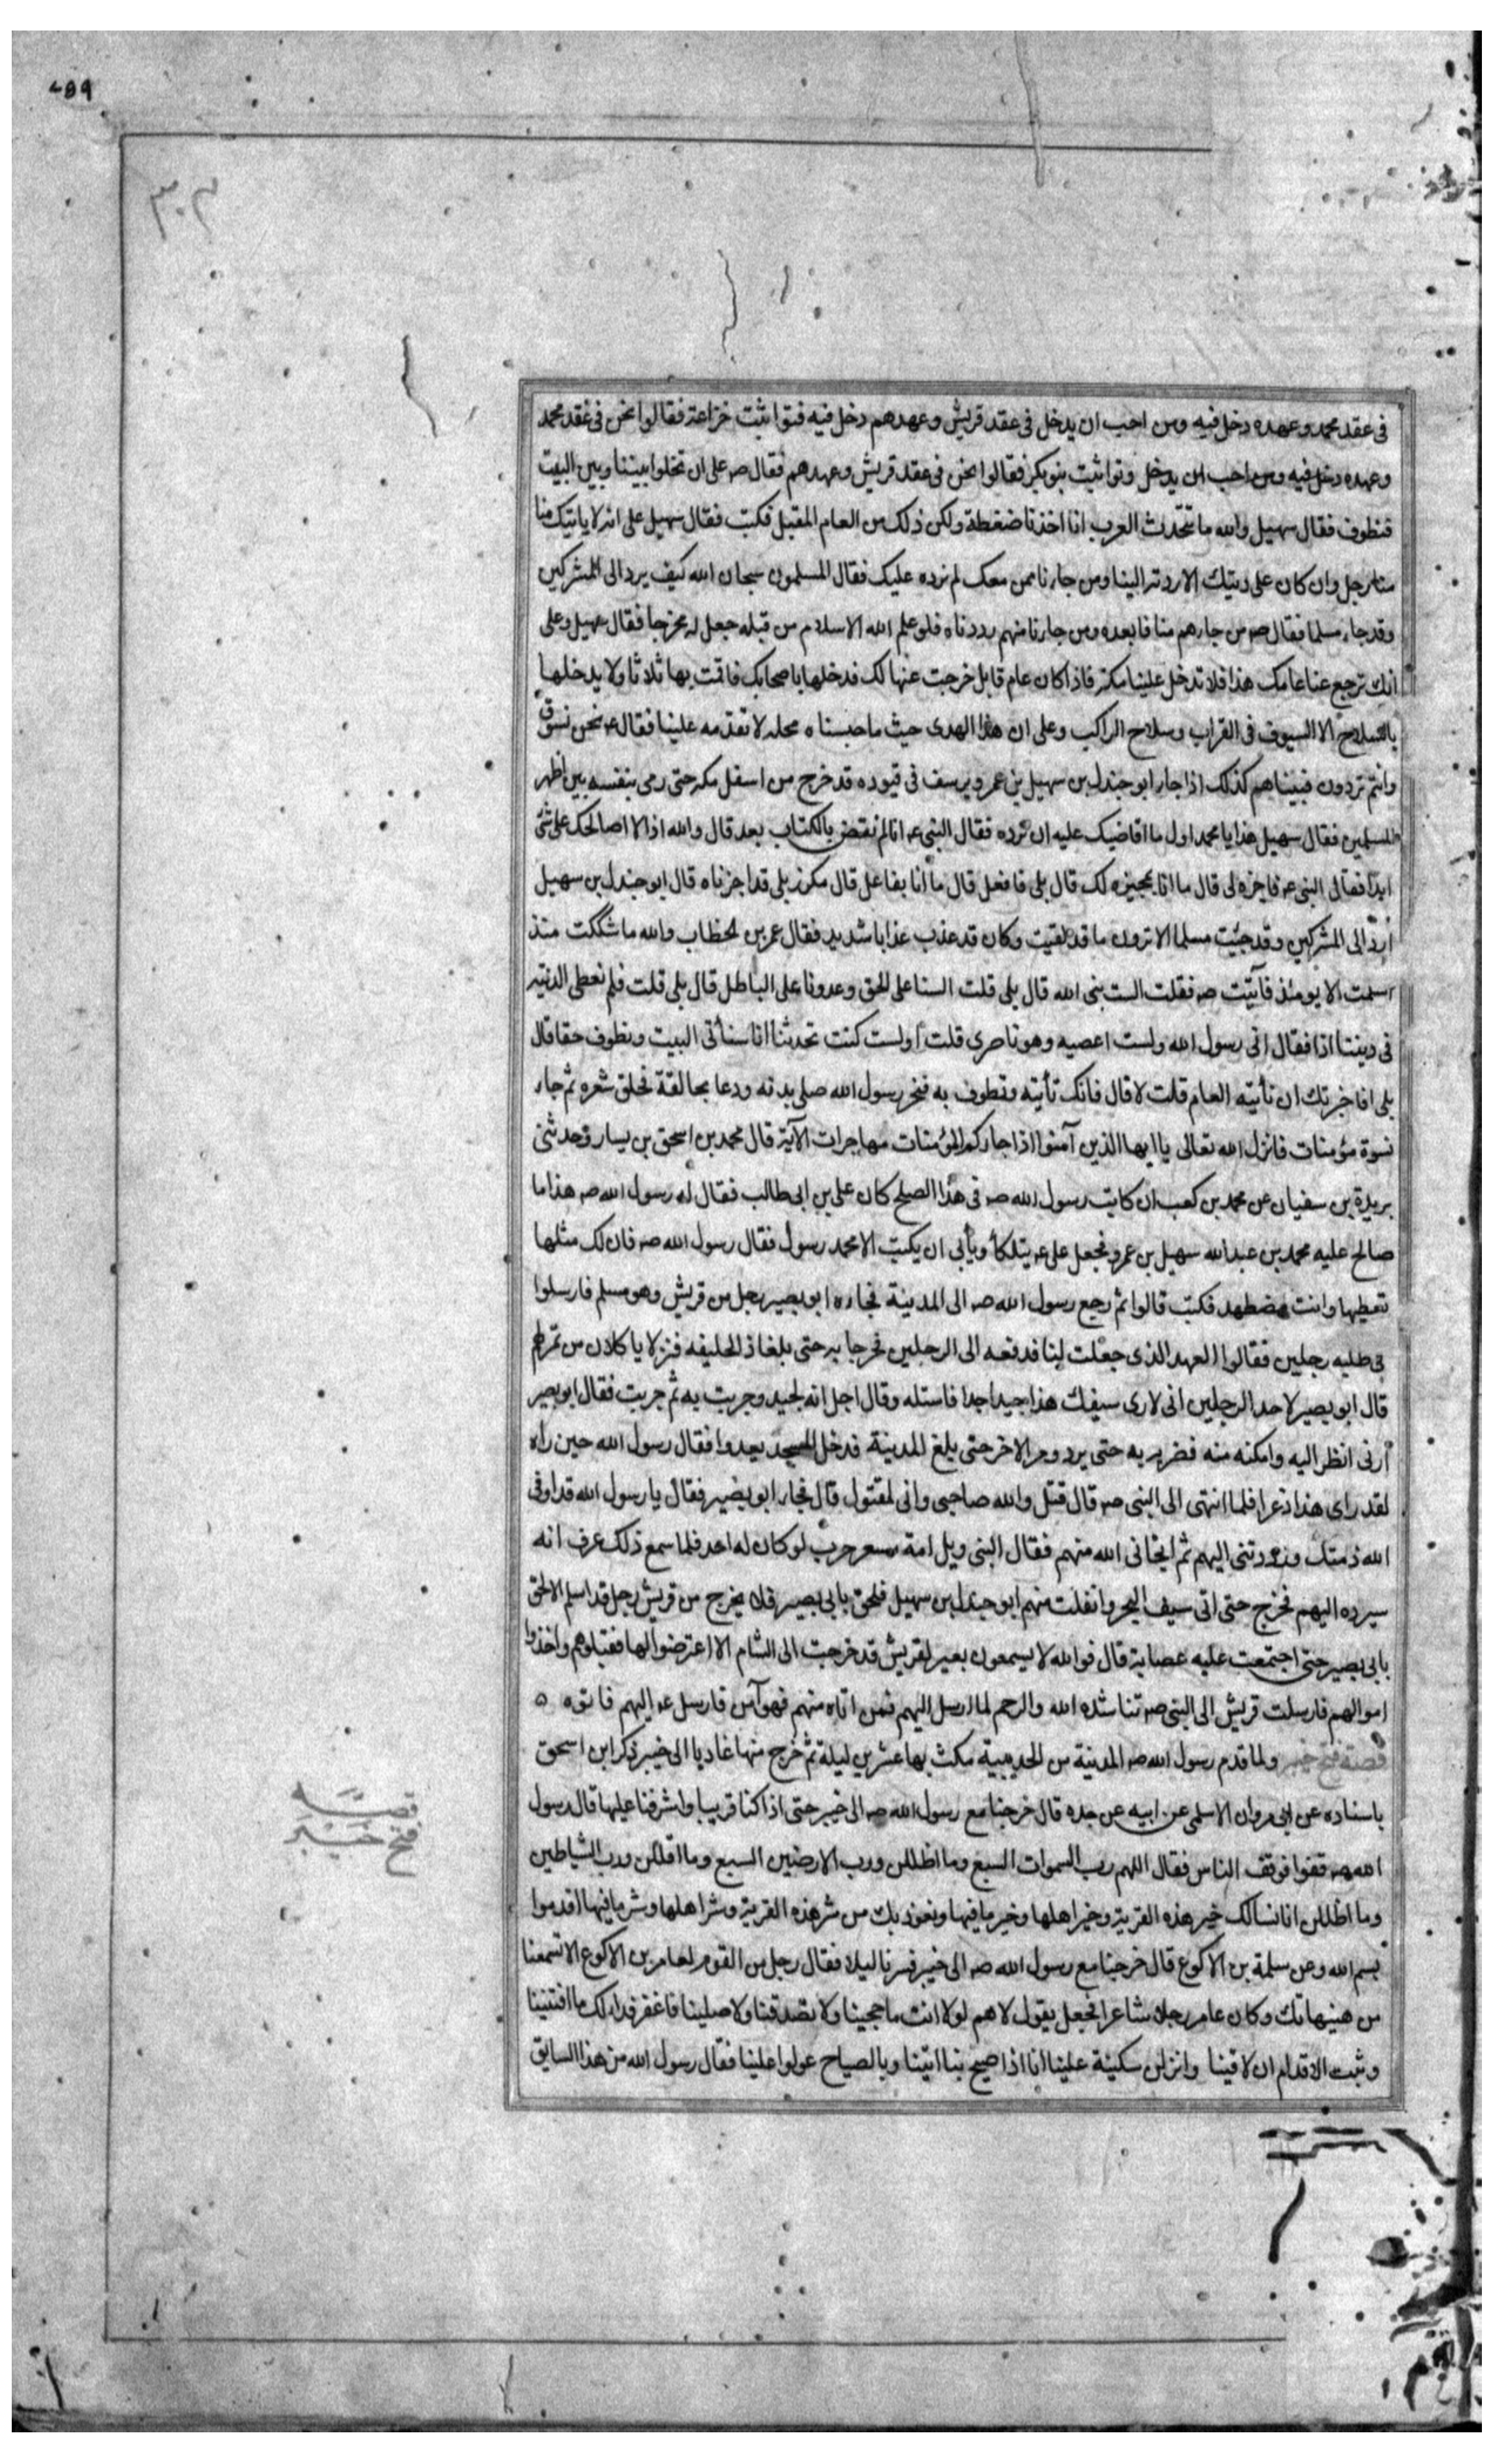 ٥٩٧
٣٠٢
فى عقد محمد وعهده دخل فيه ومن احب ان يدخل فى عقد قريش وعهدهم دخل فيه فتواثبت خزاعة فقالوا نحن فى عقد محمد
وعهده دخل فيه ومن احب ان يدخل وتواثبت بنو بكر فقالوا نحن فى عقد قريش وعهدهم فقال صه على ان تخلوا بيننا وبين البيت
فنطوف فقال سهيل والله ما تتحدث العرب انا اخذنا ضغطة ولكن ذلك من العام المقبل فكتب فقال سهيل على انه لا ياتيك منا
منا رجل وان كان على دينك الا رددته الينا ومن جاءنا ممن معك لم نرده عليك فقال المسلمون سبحان الله كيف يرد الى المشركين
وقد جاء مسلما فقال صه من جاءهم منا فابعده ومن جاءنا منهم رددناه فلو علم الله الاسلام من قبله جعل له مخرجا فقال سهيل وعلى
انك ترجع عنا عامك هذا فلا تدخل علينا مكة فاذا كان عام قابل خرجت عنها لك فدخلها باصحابك فاقمت بها ثلاثا ولا يدخلها
بالسلاح الا السيوف فى القراب وسلاح الراكب وعلى ان هذا الهدى حيث ما حبسناه محله لا تقدمه علينا فقال عه نحن نسوق
وانتم تردون فبيناهم كذلك اذا جاء ابو جندل بن سهيل بن عمرو يرسف فى قيوده قد خرج من اسفل مكه حتى رمى بنفسه بين اظهر
المسلمين فقال سهيل هذا يا محمد اول ما اقاضيك عليه ان ترده فقال النبى عه انا لم نقض بالكتاب بعد قال والله اذا لا اصالحك على شئ
ابدا فقال النبى عه فاجزه لى قال ما انا بمجيزه لك قال بلى فافعل قال ما انا بفاعل قال مكرز بلى قد اجزناه قال ابو جندل بن سهيل
أرد الى المشركين وقد جئت مسلما الا ترون ما قد لقيت وكان قد عذب عذابا شديد فقال عمر بن الخطاب والله ما شككت منذ
اسلمت الا يومئذ فأتيت صه فقلت الست بنى الله قال بلى قلت السنا على الحق وعدونا على الباطل قال بلى قلت فلم نعطى الدنيه
فى ديننا اذا فقال انى رسول الله ولست اعصيه وهو ناصرى قلت أولست كنت تحدثنا انا سنأتى البيت ونطوف حقا قال
بلى افاخبرتك ان تأتيه العام قلت لا قال فانك تأتيه وتطوف به فنحر رسول الله صلى بدنه ودعا بحالقة فحلق شعره ثم جاء
نسوة مؤمنات فانزل الله تعالى يا ايها الذين آمنوا اذا جاءكم المؤمنات مهاجرات الآية قال محمد بن اسحق بن يسار وحدثنى
بريدة بن سفيان عن محمد بن كعب ان كاتب رسول الله صه فى هذا الصلح كان على بن ابى طالب فقال له رسول الله صه هذا ما
صالح عليه محمد بن عبد الله سهيل بن عمرو فجعل على عه يتلكأ ويأبى ان يكتب الا محمد رسول فقال رسول الله صه فان لك مثلها
تعطيها وانت مضطهد فكتب قالوا ثم رجع رسول الله صه الى المدينة فجاءه ابو بصير رجل من قريش وهو مسلم فارسلوا
فى طلبه رجلين فقالوا العهد الذى جعلت لنا فدفعه الى الرجلين فخرجا به حتى بلغا ذ الحليفه فنزلا ياكلان من تمرلهم
قال ابو بصير لاحد الرجلين انى لارى سيفك هذا جيدا جدا فاستله وقال اجل انه لجيد وجربت به ثم جربت فقال ابو بصير
أرنى انظر اليه وامكنه منه فضربه به حتى برد ومر الاخر حتى بلغ المدينة فدخل المسجد يعدوا فقال رسول الله حين راه
لقد راى هذا ذعرا فلما انتهى الى النبى صه قال قتل والله صاحبى وانى لمقتول قال فجاء ابو بصير فقال يا رسول الله قد اوفى
الله ذمتك ورددتنى اليهم ثم انجانى الله منهم فقال النبى ويل امه مسعر حرب لو كان له احد فلما سمع ذلك عرف انه
سيرده اليهم فخرج حتى اتى سيف البحر وانفلت منهم ابو جندل بن سهيل فلحق بابى بصير فلا يخرج من قريش رجل قد اسلم الا لحق
بابى بصير حتى اجتمعت عليه عصابة قال فوالله لا يسمعون بعير لقريش قد خرجت الى الشام الا اعترضوا لها فقتلوهم واخذوا
اموالهم فارسلت قريش الى النبى صه تناشده الله والرحم لما ارسل اليهم فمن اتاه منهم فهو آمن فارسل عه اليهم فاتوه ه
قصة فتح خيبر ولما قدم رسول الله صه المدينة من الحديبية مكث بها عشرين ليلة ثم خرج منها غاديا الى خيبر ذكر ابن اسحق
باسناده عن ابى مروان الاسلمى عن ابيه عن جده قال خرجنا مع رسول الله صه الى خيبر حتى اذا كنا قريبا واشرفنا عليها قال رسول
الله صه قفوا فوقف الناس فقال اللهم رب السموات السبع وما اظللن ورب الارضين السبع وما اقللن ورب الشياطين
وما اظللن انا نسالك خير هذه القرية وخير اهلها وخير ما فيها ونعوذ بك من شر هذه القرية وشر اهلها وشر ما فيها اقدموا
بسم الله وعن سلمة بن الاكوع قال خرجنا مع رسول الله صه الى خيبر فسرنا ليلا فقال رجل من القوم لعامر بن الاكوع الا تسمعنا
من هنيهاتك وكان عامر رجلا شاعرا فجعل يقول لاهم لولا انت ما حجينا ولا تصدقنا ولا صلينا فاغفر فداء لك ما اقتنينا
وثبت الاقدام ان لاقينا وانزلن سكينة علينا انا اذا صيح بنا اتينا وبالصياح عولوا علينا فقال رسول الله من هذا السابق
قصــه
فتح خيبر